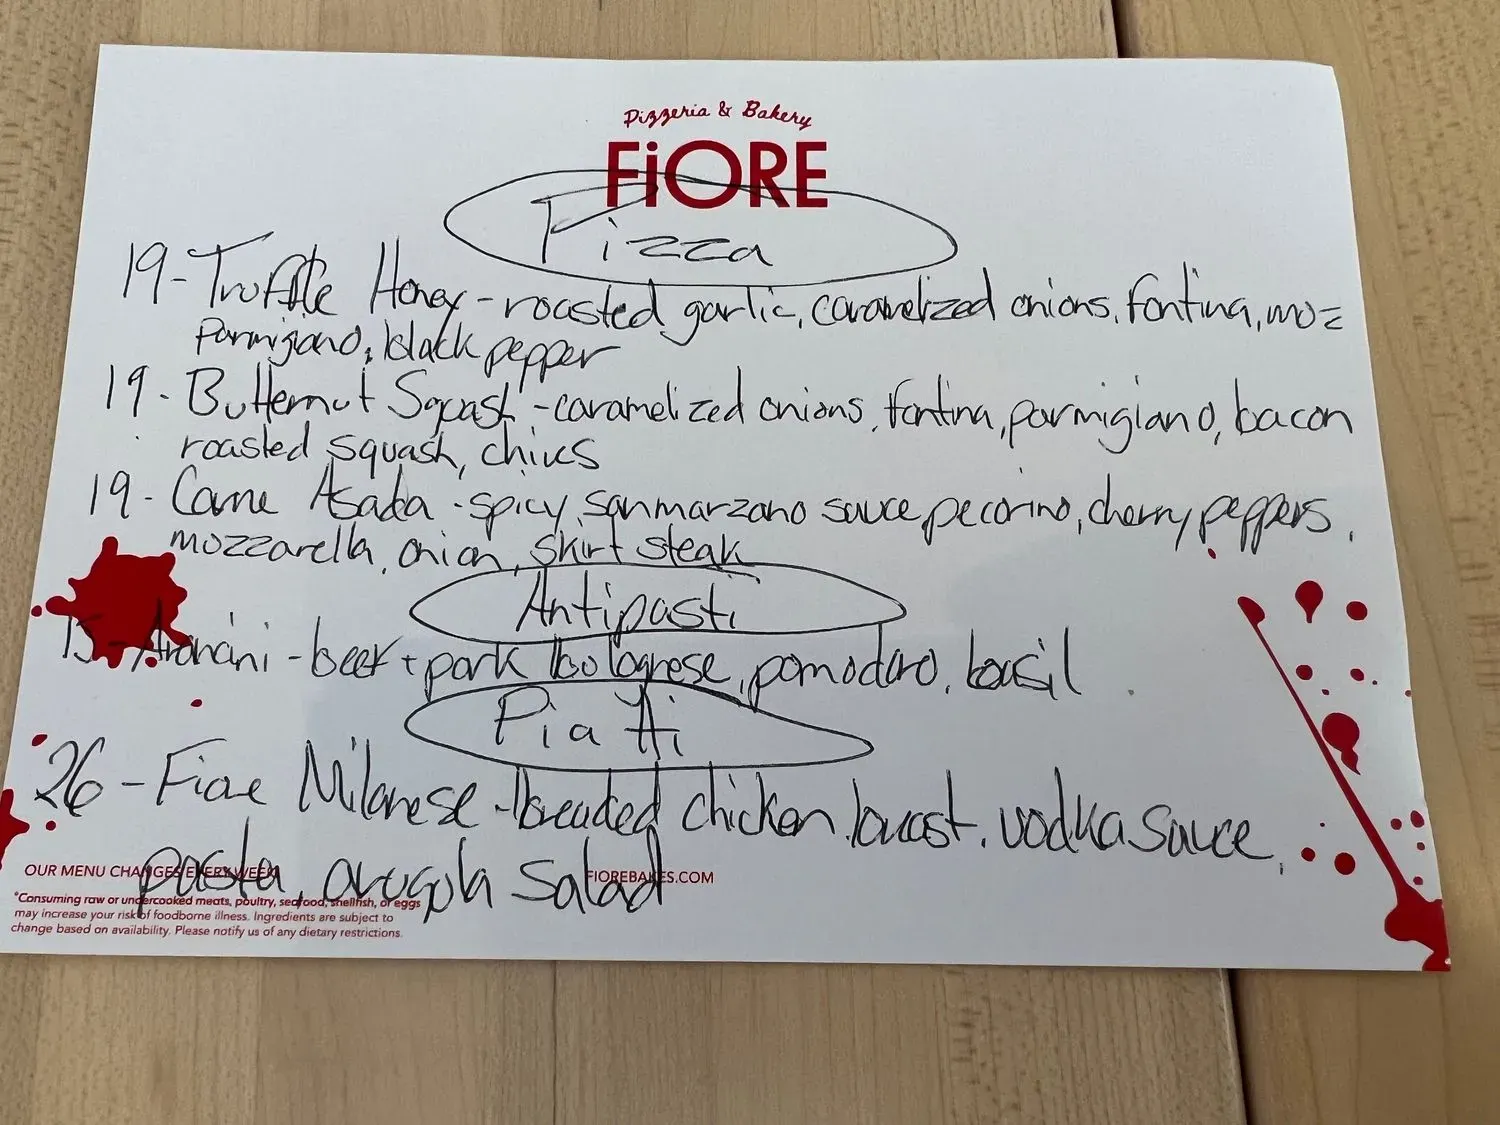 Pizzeria & Bakery
FiORE
Pizza
19 - Truffle Honey - roasted garlic, caramelized onions, fontina, moz
parmigiano, black pepper
19 - Butternut Squash - caramelized onions, fontina, parmigiano, bacon
roasted squash, chives
19 - Carne Asada - spicy sanmarzano sauce pecorino, cherry peppers,
mozzarella, onion, skirt steak
Antipasti
15 - Arancini - beef + pork bolognese, pomodoro, basil
Piatti
26 - Fiore Milanese - breaded chicken breast, vodka sauce,
pasta, arugula salad
OUR MENU CHANGES EVERY WEEK
FIOREBAKES.COM
*Consuming raw or undercooked meats, poultry, seafood, shellfish, or eggs
may increase your risk of foodborne illness. Ingredients are subject to
change based on availability. Please notify us of any dietary restrictions.